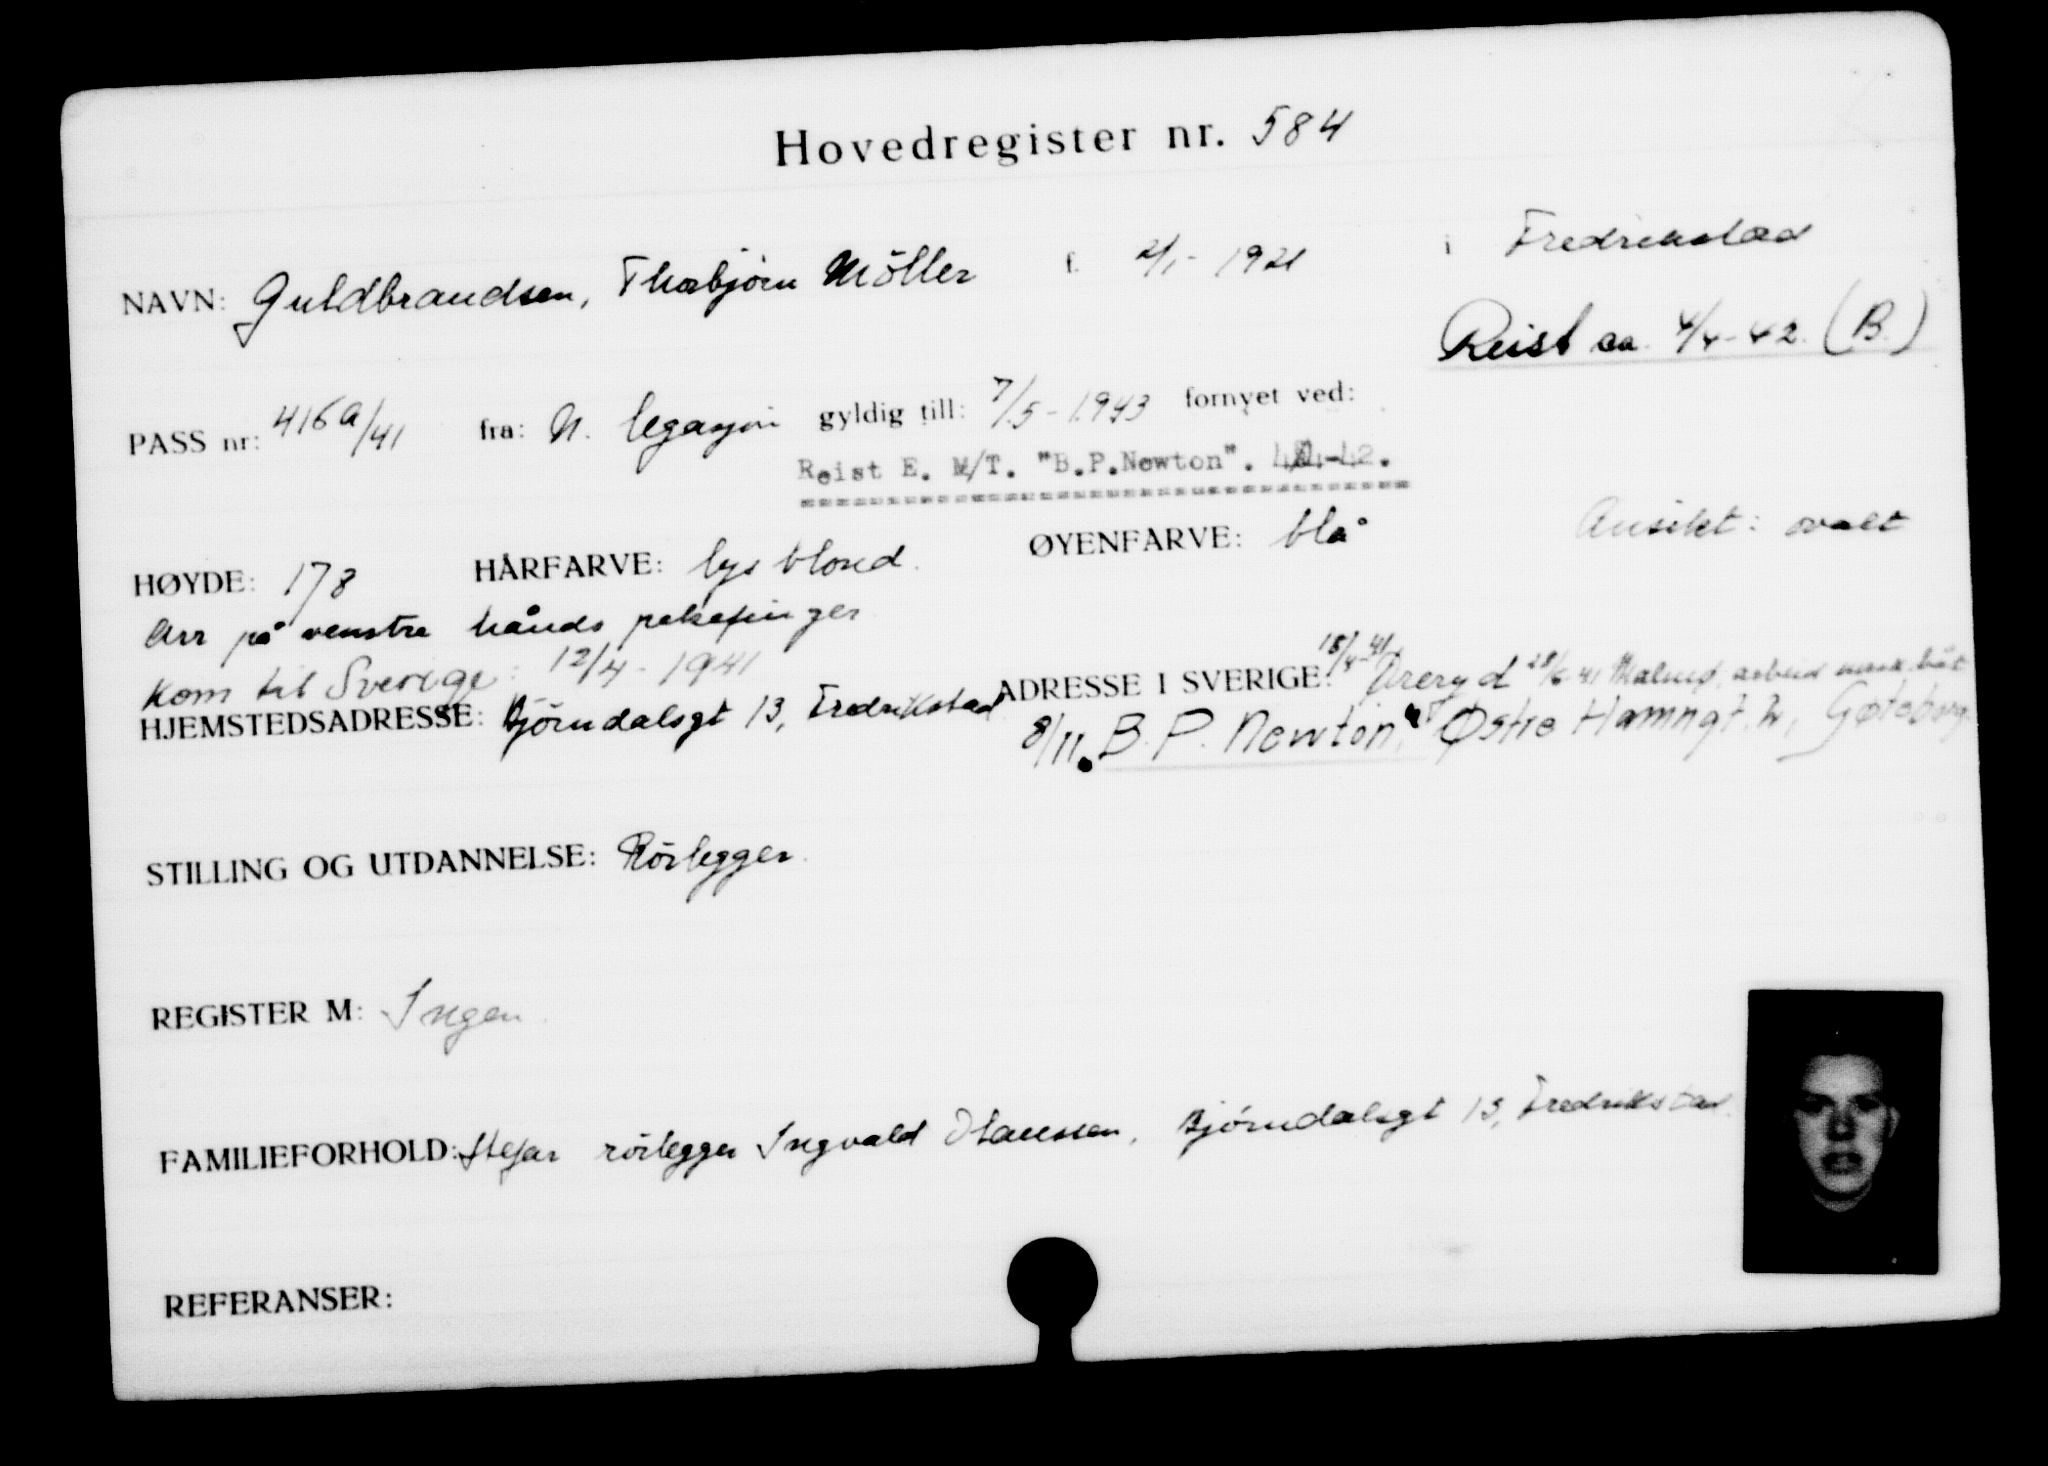 Hovedregister nr. 584
NAVN: Guldbrandsen, Thorbjørn Möller f. 2/1- 1921 i Fredrikstad
Reist ca. 4/4-42. (B.)
PASS nr: 416a/41 fra: N. legasjon gyldig till: 7/5-1943 fornyet ved:
Reist E. M/T. "B.P.Newton". 4/4-42.
HØYDE: 178 HÅRFARVE: lys blond. ØYENFARVE: blå Ansikt: ovalt
Arr på venstre hånds pekefinger
Kom til Sverige: 12/4-1941
HJEMSTEDSADRESSE: Bjørndalsgt 13, Fredrikstad ADRESSE I SVERIGE: 18/4-41 Öreryd 28/6 41 Malmø, arbeid norsk båt
8/11. B.P. Newton, Østre Hamngt. 2, Gøteborg
STILLING OG UTDANNELSE: Rörlegger.
REGISTER M: Ingen.
FAMILIEFORHOLD: Stefar rörlegger Ingvald Hanssen, Bjørndalsgt 13, Fredrikstad.
REFERANSER: